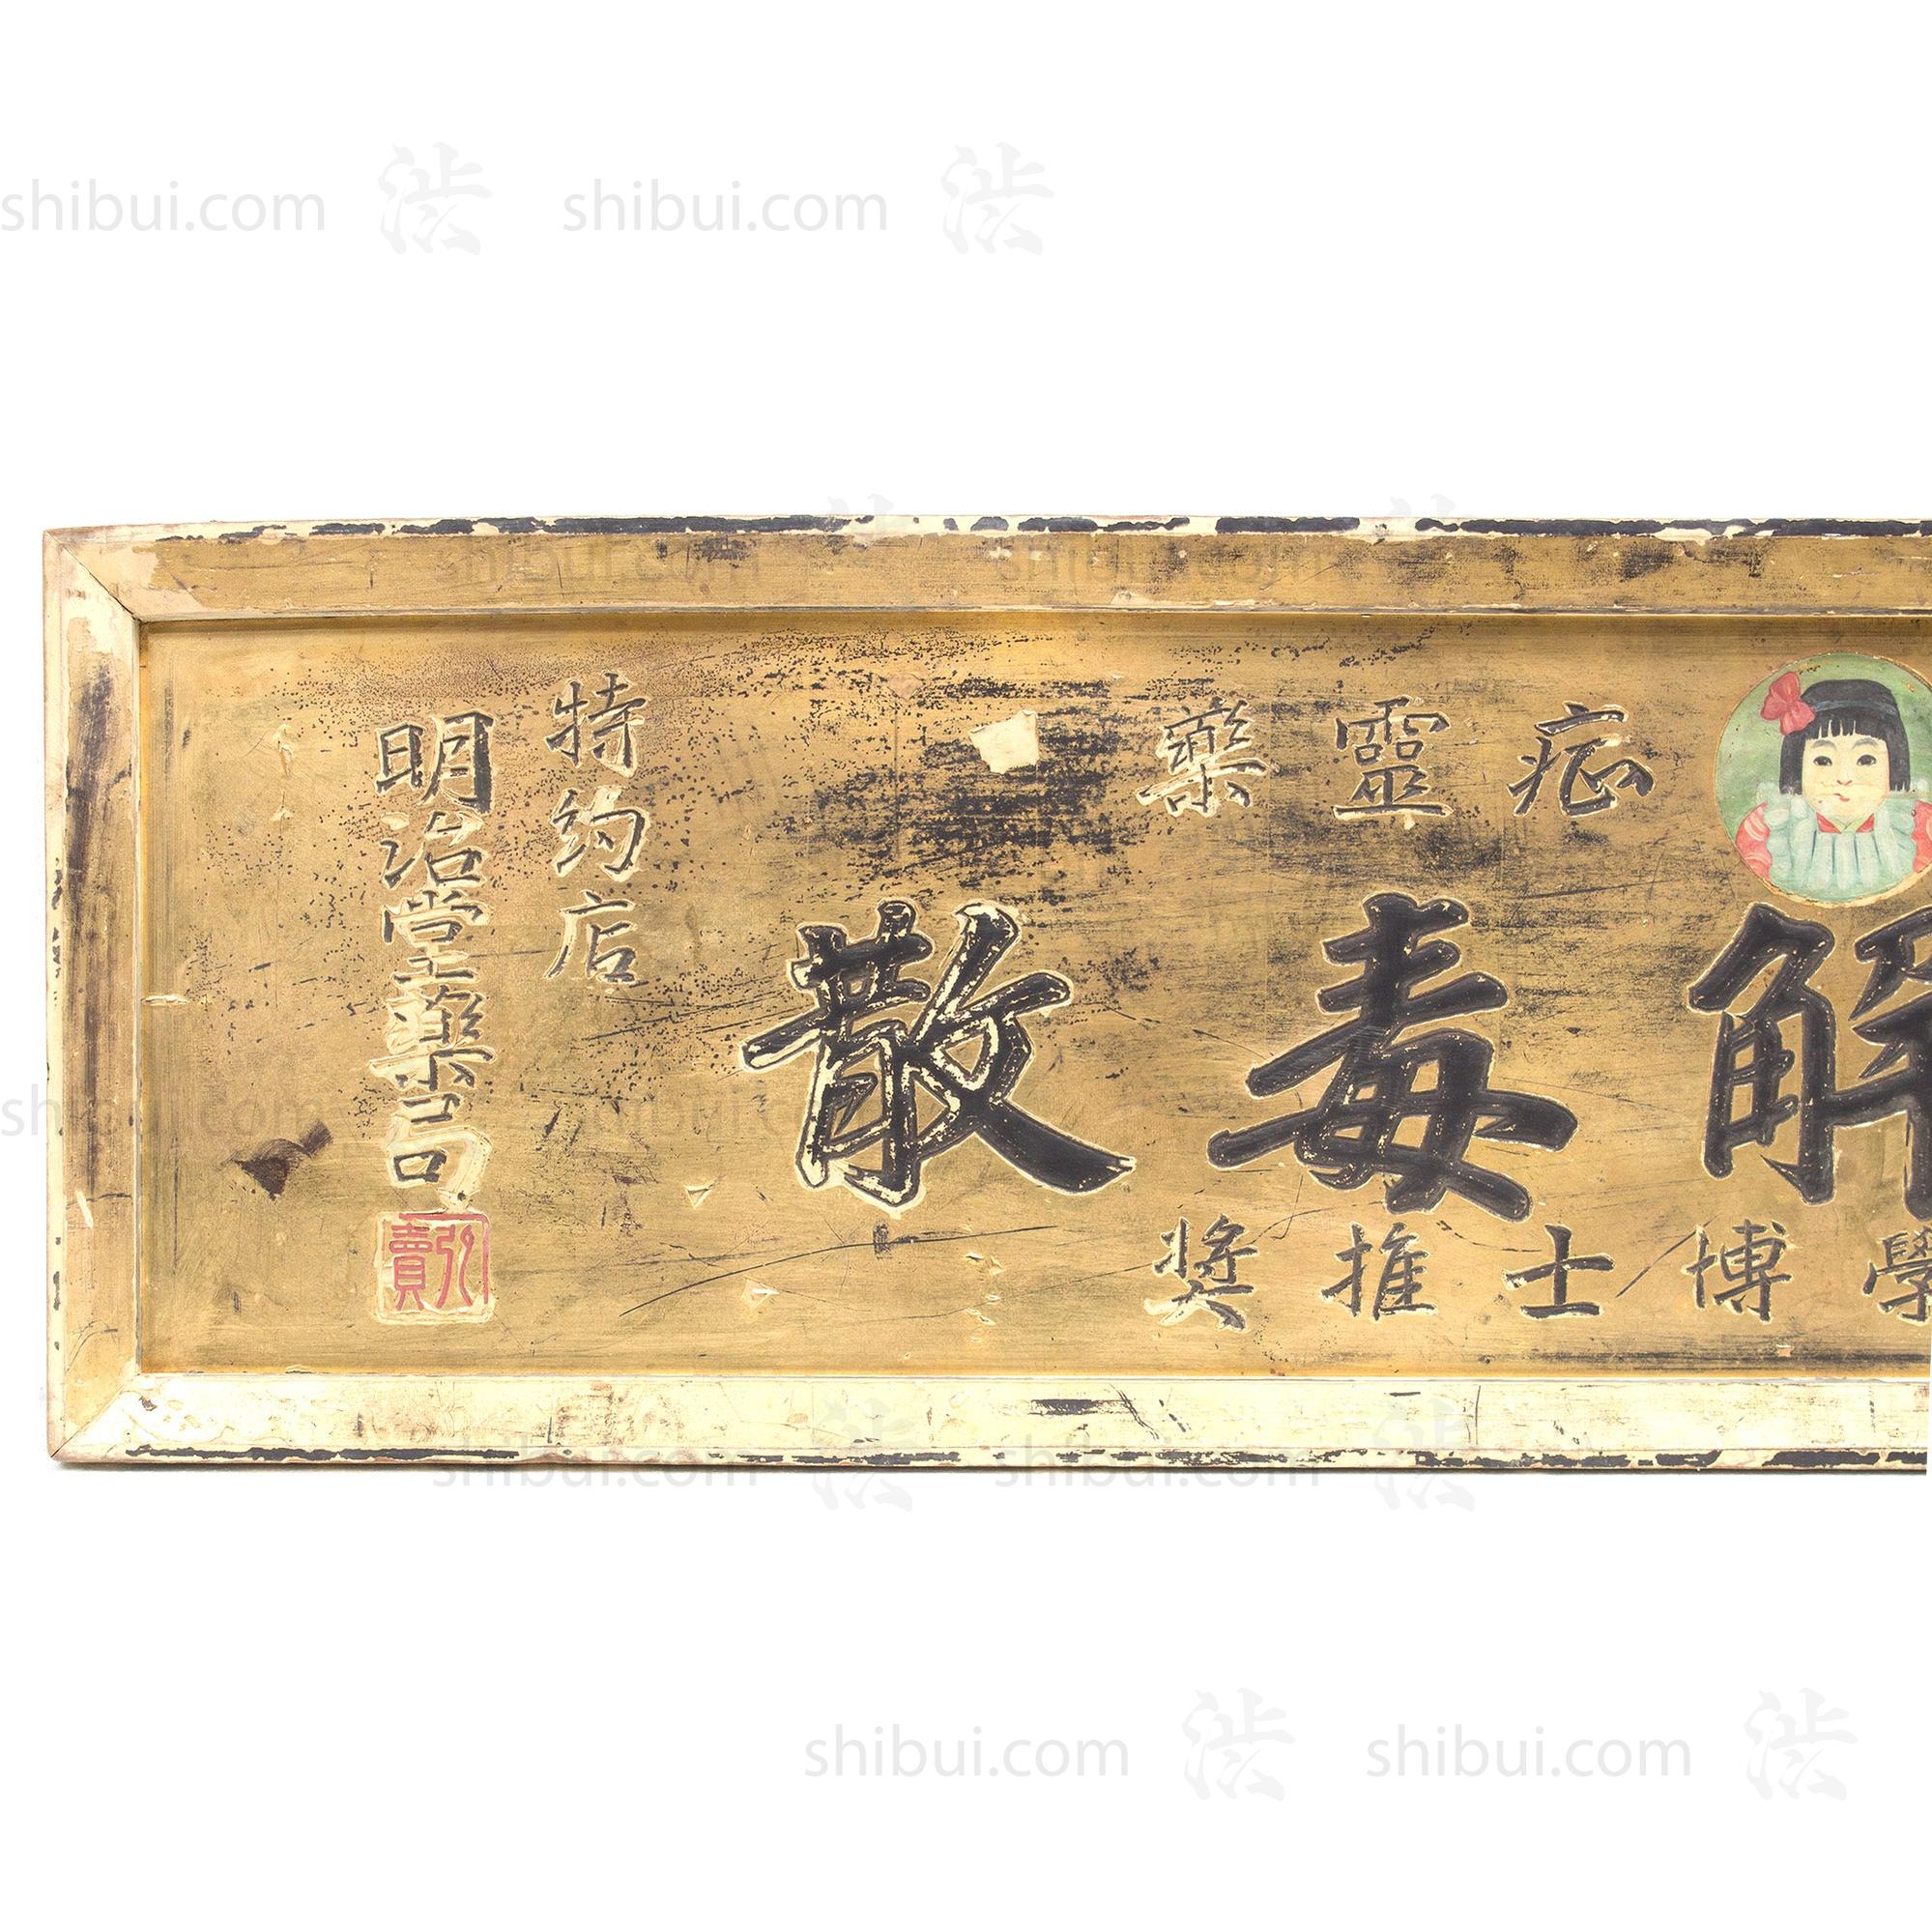 shibui.com 渋 shibui.com 渋
症靈藥
解毒散
學博士推奬
特約店
明治堂藥局
弘賣
shibui.com 渋 shibui.com 渋